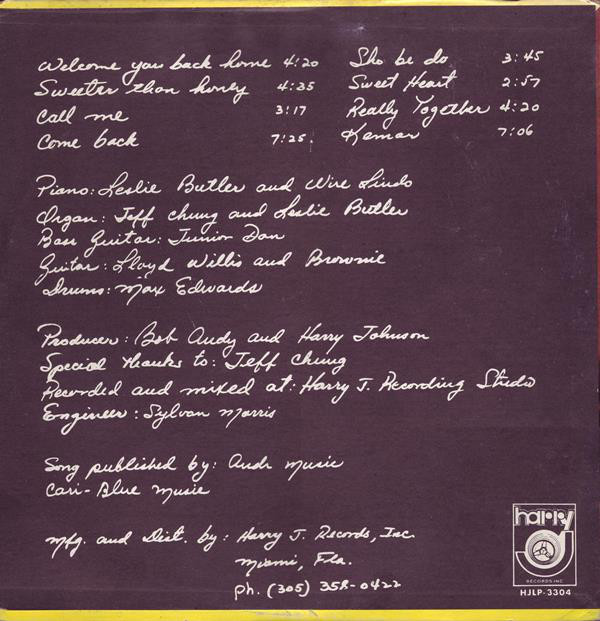 Welcome you back home 4:20
Sweeter than honey 4:35
Call me 3:17
Come back 7:25
Sho be do 3:45
Sweet Heart 2:57
Really Together 4:20
Kemar 7:06
Piano: Leslie Butler and Wire Lindo
Organ: Jeff Chung and Leslie Butler
Bass Guitar: Junior Dan
Guitar: Lloyd Willis and Brownie
Drums: Max Edwards
Producer: Bob Andy and Harry Johnson
Special thanks to: Jeff Chung
Recorded and mixed at: Harry J. Recording Studio
Engineer: Sylvan Morris
Song published by: Andr Music
Cari-Blue Music
Mfg. and Dist. by: Harry J. Records, Inc.
Miami, Fla.
Ph. (305) 358-0422
harry J
RECORDS INC
HJLP-3304